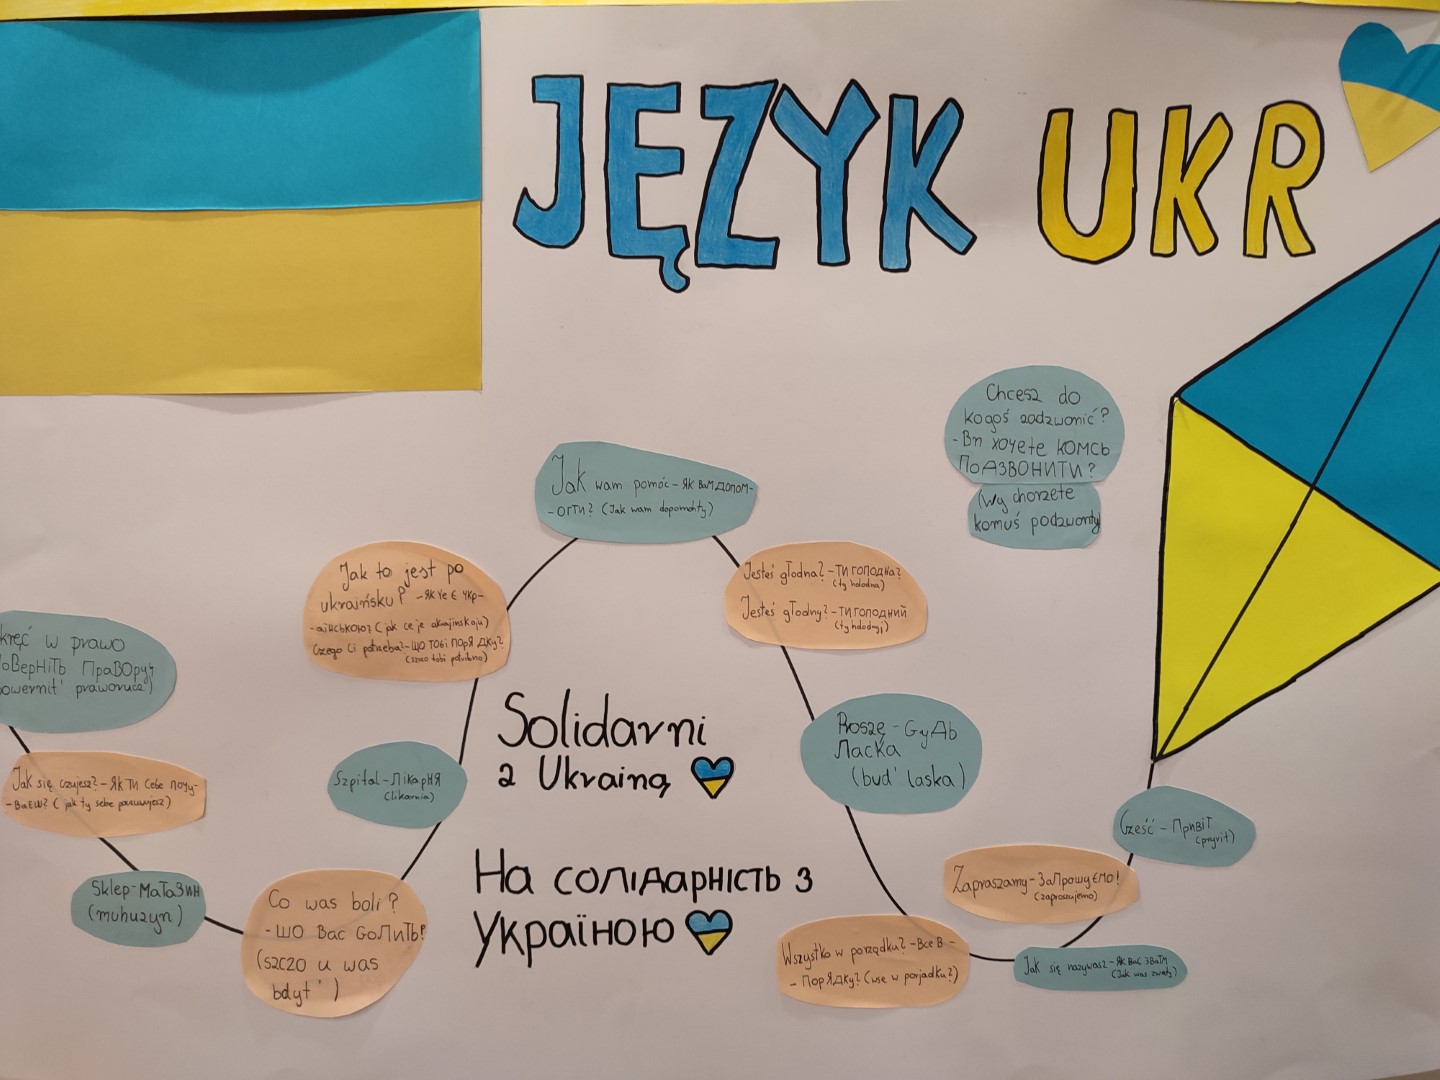 JĘZYK UKR
Chcesz do
kogoś zadzwonić?
-Вп хочете комсь
подзвонити?
(Wy choczete
komuś podzwonty)
Jak wam pomóc-як вам допом-
-огти? (Jak wam dopomohty)
Jak to jest po
ukraińsku? -як це є укр-
-аїнською? (jak ce je ukrajinskoju)
Czego Ci potrzeba?-що тобі порядку?
(szczo tobi potribno)
Jesteś głodna?-Ти голодна?
(ty holodna)
Jesteś głodny?-Ти голодний
(ty holodnyj)
kręć w prawo
оверніть праворуч
owernit' praworucz)
Jak się czujesz?-як ти себе почу-
-ваєш? (jak ty sebe poczuwajesz)
Szpital-лікарня
(likarnia)
Sklep-матазин
(muhuzyn)
Co was boli?
-шо вас болить?
(szczo u was
bdyt')
Solidarni
z Ukrainą
На солідарність з
Україною
Proszę-Будь
ласка
(bud' laska)
Cześć-Привіт
(pryvit)
Zapraszamy-Запрошуємо!
(zaproszujemo)
Wszystko w porządku?-Все в-
-порядку? (wse w porjadku?)
Jak się nazywasz?-як вас звати
(Jak was zwaty)